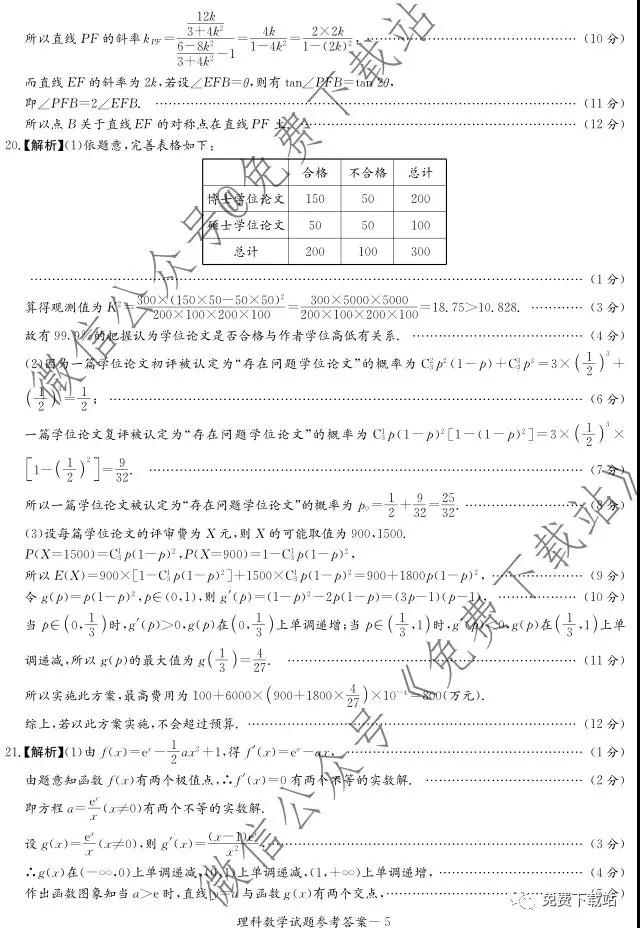 所以直线 PF 的斜率 k_PF = (12k/(3+4k²))/((6-8k²)/(3+4k²)-1) = 4k/(1-4k²) = (2×2k)/(1-(2k)²), …… (10 分)
而直线 EF 的斜率为 2k,若设∠EFB=θ,则有 tan∠PFB=tan 2θ,
即∠PFB=2∠EFB. …… (11 分)
所以点 B 关于直线 EF 的对称点在直线 PF 上. …… (12 分)
20.【解析】(1)依题意,完善表格如下:
合格 不合格 总计
博士学位论文 150 50 200
硕士学位论文 50 50 100
总计 200 100 300
…… (1 分)
算得观测值为 K² = 300×(150×50-50×50)²/(200×100×200×100) = 300×5000×5000/(200×100×200×100) = 18.75>10.828. …… (3 分)
故有 99.9%的把握认为学位论文是否合格与作者学位高低有关系. …… (4 分)
(2)因为一篇学位论文初评被认定为“存在问题学位论文”的概率为 C₃²p²(1-p)+C₃³p³=3×(1/2)³+
(1/2)³=1/2; …… (6 分)
一篇学位论文复评被认定为“存在问题学位论文”的概率为 C₃¹p(1-p)²[1-(1-p)²]=3×(1/2)³×
[1-(1/2)²]=9/32. …… (7 分)
所以一篇学位论文被认定为“存在问题学位论文”的概率为 p₀=1/2+9/32=25/32. …… (8 分)
(3)设每篇学位论文的评审费为 X 元,则 X 的可能取值为 900,1500.
P(X=1500)=C₃¹p(1-p)²,P(X=900)=1-C₃¹p(1-p)²,
所以 E(X)=900×[1-C₃¹p(1-p)²]+1500×C₃¹p(1-p)²=900+1800p(1-p)², …… (9 分)
令 g(p)=p(1-p)²,p∈(0,1),则 g′(p)=(1-p)²-2p(1-p)=(3p-1)(p-1), …… (10 分)
当 p∈(0,1/3)时,g′(p)>0,g(p)在(0,1/3)上单调递增;当 p∈(1/3,1)时,g′(p)<0,g(p)在(1/3,1)上单
调递减,所以 g(p)的最大值为 g(1/3)=4/27. …… (11 分)
所以实施此方案,最高费用为 100+6000×(900+1800×4/27)×10⁻⁴=800(万元).
综上,若以此方案实施,不会超过预算. …… (12 分)
21.【解析】(1)由 f(x)=eˣ-1/2ax²+1,得 f′(x)=eˣ-ax, …… (1 分)
由题意知函数 f(x)有两个极值点,∴f′(x)=0 有两个不等的实数解. …… (2 分)
即方程 a=eˣ/x(x≠0)有两个不等的实数解.
设 g(x)=eˣ/x(x≠0),则 g′(x)=(x-1)eˣ/x², …… (3 分)
∴g(x)在(-∞,0)上单调递减,(0,1)上单调递减,(1,+∞)上单调递增, …… (4 分)
作出函数图象知当 a>e 时,直线 y=a 与函数 g(x)有两个交点, …… (5 分)
理科数学试题参考答案-5
微信公众号@免费下载站
微信公众号《免费下载站》
免费下载站